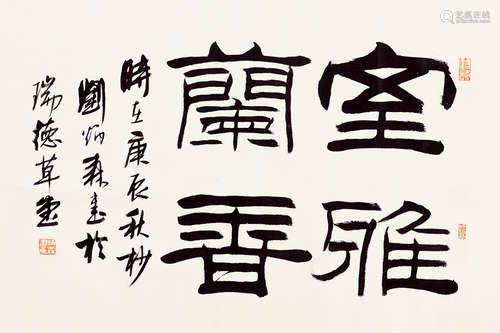 室雅
蘭香
時在庚辰秋杪
劉炳森書於
瑞德草堂
艺狐在线